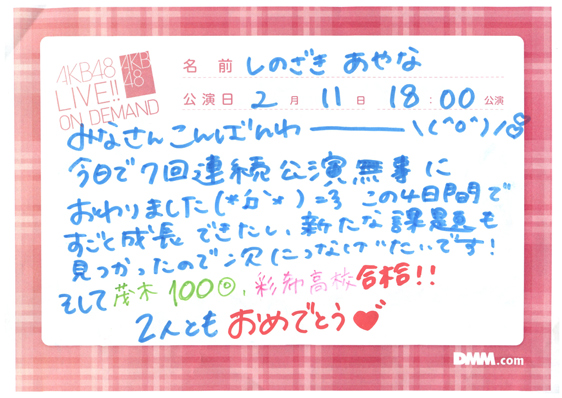 AKB48
LIVE!!
ON DEMAND
AKB
48
名前 しのざき あやな
公演日 2月 11日 18:00 公演
みなさんこんばんわ――\(^o^)/
今日で7回連続公演無事に
おわりました(*´Д`*)=3 この4日間で
すごく成長できたし、新たな課題も
見つかったので次につなげたいです!
そして茂木100回、彩希高校合格!!
2人ともおめでとう♥
DMM.com